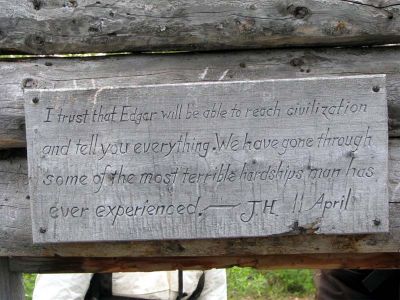 I trust that Edgar will be able to reach civilization
and tell you everything. We have gone through
some of the most terrible hardships man has
ever experienced. — J.H. 11 April